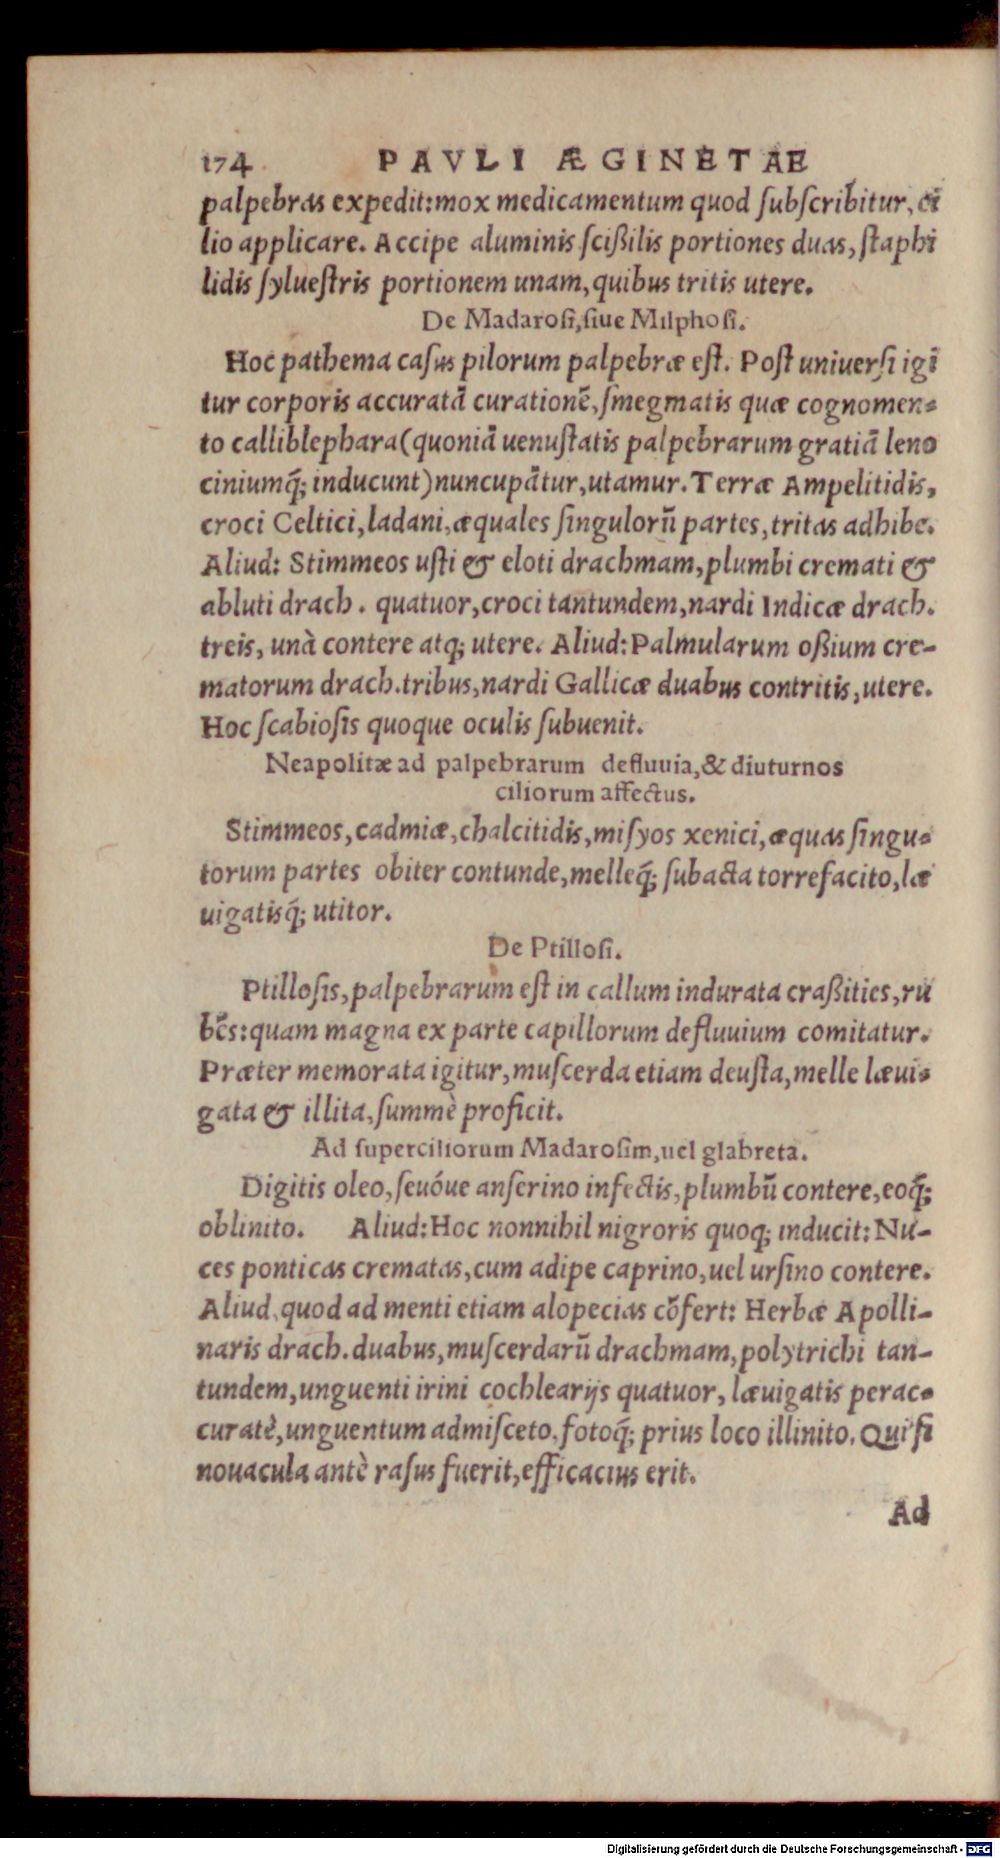 174 PAVLI ÆGINETAE
palpebras expedit: mox medicamentum quod ſubſcribitur, ci
lio applicare. Accipe aluminis ſcißilis portiones duas, ſtaphi
lidis ſylueſtris portionem unam, quibus tritis utere.
De Madaroſi, ſiue Milphoſi.
Hoc pathema caſus pilorum palpebræ eſt. Poſt uniuerſi igi
tur corporis accuratā curationē, ſmegmatis quæ cognomen-
to calliblephara (quoniā uenuſtatis palpebrarum gratiā leno
ciniumq́; inducunt) nuncupātur, utamur. Terræ Ampelitidis,
croci Celtici, ladani, æquales ſingulorū partes, tritas adhibe.
Aliud: Stimmeos uſti & eloti drachmam, plumbi cremati &
abluti drach. quatuor, croci tantundem, nardi Indicæ drach.
treis, unà contere atq; utere. Aliud: Palmularum oßium cre-
matorum drach. tribus, nardi Gallicæ duabus contritis, utere.
Hoc ſcabioſis quoque oculis ſubuenit.
Neapolitæ ad palpebrarum defluuia, & diuturnos
ciliorum affectus.
Stimmeos, cadmiæ, chalcitidis, miſyos xenici, æquas ſingu-
torum partes obiter contunde, melleq́; ſubacta torrefacito, læ
uigatisq́; utitor.
De Ptilloſi.
Ptilloſis, palpebrarum eſt in callum indurata craßities, ru
bēs: quam magna ex parte capillorum defluuium comitatur.
Præter memorata igitur, muſcerda etiam deuſta, melle læui-
gata & illita, ſummè proficit.
Ad ſuperciliorum Madaroſim, uel glabreta.
Digitis oleo, ſeuóue anſerino infectis, plumbū contere, eoq́;
oblinito. Aliud: Hoc nonnihil nigroris quoq; inducit: Nu-
ces ponticas crematas, cum adipe caprino, uel urſino contere.
Aliud, quod ad menti etiam alopecias cōfert: Herbæ Apolli-
naris drach. duabus, muſcerdarū drachmam, polytrichi tan-
tundem, unguenti irini cochlearijs quatuor, læuigatis perac-
curatè, unguentum admiſceto, fotoq́; prius loco illinito. Qui ſi
nouacula antè raſus fuerit, efficacius erit.
Ad
Digitalisierung gefördert durch die Deutsche Forschungsgemeinschaft - DFG